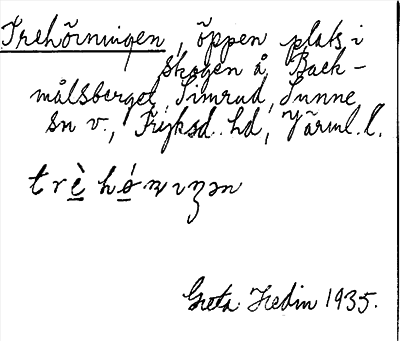 Trehörningen, öppen plats i
skogen å Back-
målsberget, Simrud, Sunne
sn v., Fryksd. hd, Värml. l.
trè hǿrnıŋən
Greta Hedin 1935.